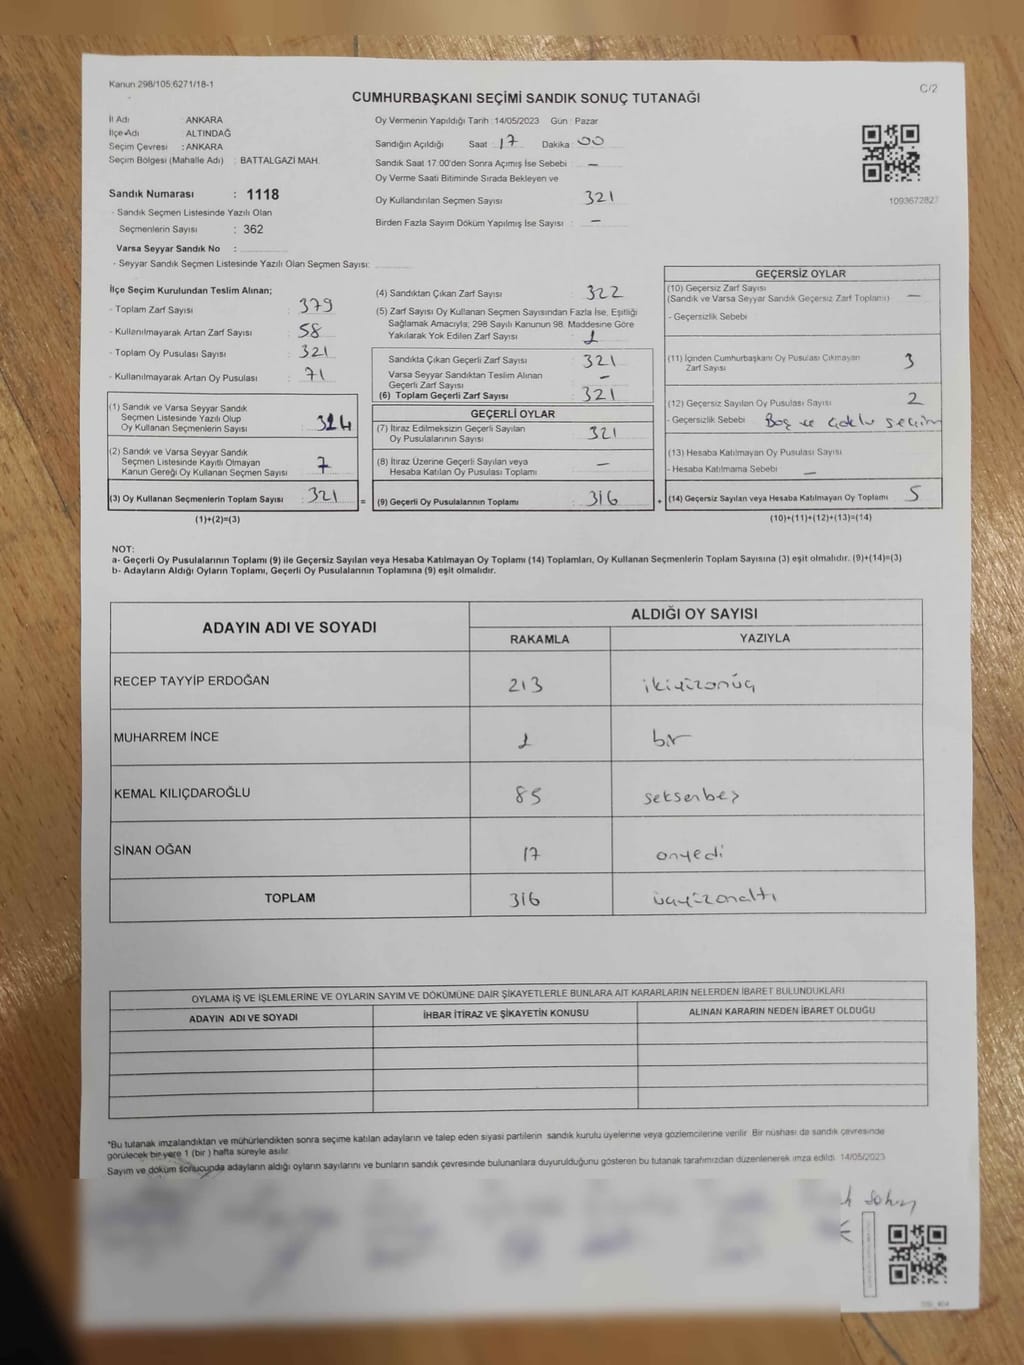 Kanun:298/105;6271/18-1
C/2
CUMHURBAŞKANI SEÇİMİ SANDIK SONUÇ TUTANAĞI
İl Adı : ANKARA
İlçe Adı : ALTINDAĞ
Seçim Çevresi : ANKARA
Seçim Bölgesi (Mahalle Adı) : BATTALGAZİ MAH.
Sandık Numarası : 1118
- Sandık Seçmen Listesinde Yazılı Olan
Seçmenlerin Sayısı : 362
Varsa Seyyar Sandık No :
- Seyyar Sandık Seçmen Listesinde Yazılı Olan Seçmen Sayısı:
Oy Vermenin Yapıldığı Tarih : 14/05/2023 Gün : Pazar
Sandığın Açıldığı Saat : 17 Dakika : 00
Sandık Saat 17.00'den Sonra Açımış İse Sebebi : —
Oy Verme Saati Bitiminde Sırada Bekleyen ve
Oy Kullandırılan Seçmen Sayısı : 321
Birden Fazla Sayım Döküm Yapılmış İse Sayısı : —
1093672827
İlçe Seçim Kurulundan Teslim Alınan;
- Toplam Zarf Sayısı : 379
- Kullanılmayarak Artan Zarf Sayısı : 58
- Toplam Oy Pusulası Sayısı : 321
- Kullanılmayarak Artan Oy Pusulası : 71
(1) Sandık ve Varsa Seyyar Sandık
Seçmen Listesinde Yazılı Olup
Oy Kullanan Seçmenlerin Sayısı : 314
(2) Sandık ve Varsa Seyyar Sandık
Seçmen Listesinde Kayıtlı Olmayan
Kanun Gereği Oy Kullanan Seçmen Sayısı : 7
(3) Oy Kullanan Seçmenlerin Toplam Sayısı : 321
(1)+(2)=(3)
(4) Sandıktan Çıkan Zarf Sayısı : 322
(5) Zarf Sayısı Oy Kullanan Seçmen Sayısından Fazla İse, Eşitliği
Sağlamak Amacıyla, 298 Sayılı Kanunun 98. Maddesine Göre
Yakılarak Yok Edilen Zarf Sayısı : 1
Sandıkta Çıkan Geçerli Zarf Sayısı : 321
Varsa Seyyar Sandıktan Teslim Alınan
Geçerli Zarf Sayısı : —
(6) Toplam Geçerli Zarf Sayısı : 321
GEÇERLİ OYLAR
(7) İtiraz Edilmeksizin Geçerli Sayılan
Oy Pusulalarının Sayısı : 321
(8) İtiraz Üzerine Geçerli Sayılan veya
Hesaba Katılan Oy Pusulası Toplamı : —
= (9) Geçerli Oy Pusulalarının Toplamı : 316
GEÇERSİZ OYLAR
(10) Geçersiz Zarf Sayısı
(Sandık ve Varsa Seyyar Sandık Geçersiz Zarf Toplamı) —
- Geçersizlik Sebebi
(11) İçinden Cumhurbaşkanı Oy Pusulası Çıkmayan
Zarf Sayısı 3
(12) Geçersiz Sayılan Oy Pusulası Sayısı 2
- Geçersizlik Sebebi Boş ve çoklu seçim
(13) Hesaba Katılmayan Oy Pusulası Sayısı
- Hesaba Katılmama Sebebi —
+ (14) Geçersiz Sayılan veya Hesaba Katılmayan Oy Toplamı 5
(10)+(11)+(12)+(13)=(14)
NOT:
a- Geçerli Oy Pusulalarının Toplamı (9) ile Geçersiz Sayılan veya Hesaba Katılmayan Oy Toplamı (14) Toplamları, Oy Kullanan Seçmenlerin Toplam Sayısına (3) eşit olmalıdır. (9)+(14)=(3)
b- Adayların Aldığı Oyların Toplamı, Geçerli Oy Pusulalarının Toplamına (9) eşit olmalıdır.
ADAYIN ADI VE SOYADI
ALDIĞI OY SAYISI
RAKAMLA YAZIYLA
RECEP TAYYİP ERDOĞAN 213 ikiyüzonüç
MUHARREM İNCE 1 bir
KEMAL KILIÇDAROĞLU 85 seksenbeş
SİNAN OĞAN 17 onyedi
TOPLAM 316 üçyüzonaltı
OYLAMA İŞ VE İŞLEMLERİNE VE OYLARIN SAYIM VE DÖKÜMÜNE DAİR ŞİKAYETLERLE BUNLARA AİT KARARLARIN NELERDEN İBARET BULUNDUKLARI
ADAYIN ADI VE SOYADI İHBAR İTİRAZ VE ŞİKAYETİN KONUSU ALINAN KARARIN NEDEN İBARET OLDUĞU
*Bu tutanak imzalandıktan ve mühürlendikten sonra seçime katılan adayların ve talep eden siyasi partilerin sandık kurulu üyelerine veya gözlemcilerine verilir. Bir nüshası da sandık çevresinde
görülecek bir yere 1 (bir ) hafta süreyle asılır.
Sayım ve döküm sonucunda adayların aldığı oyların sayılarını ve bunların sandık çevresinde bulunanlara duyurulduğunu gösteren bu tutanak tarafımızdan düzenlenerek imza edildi. 14/05/2023